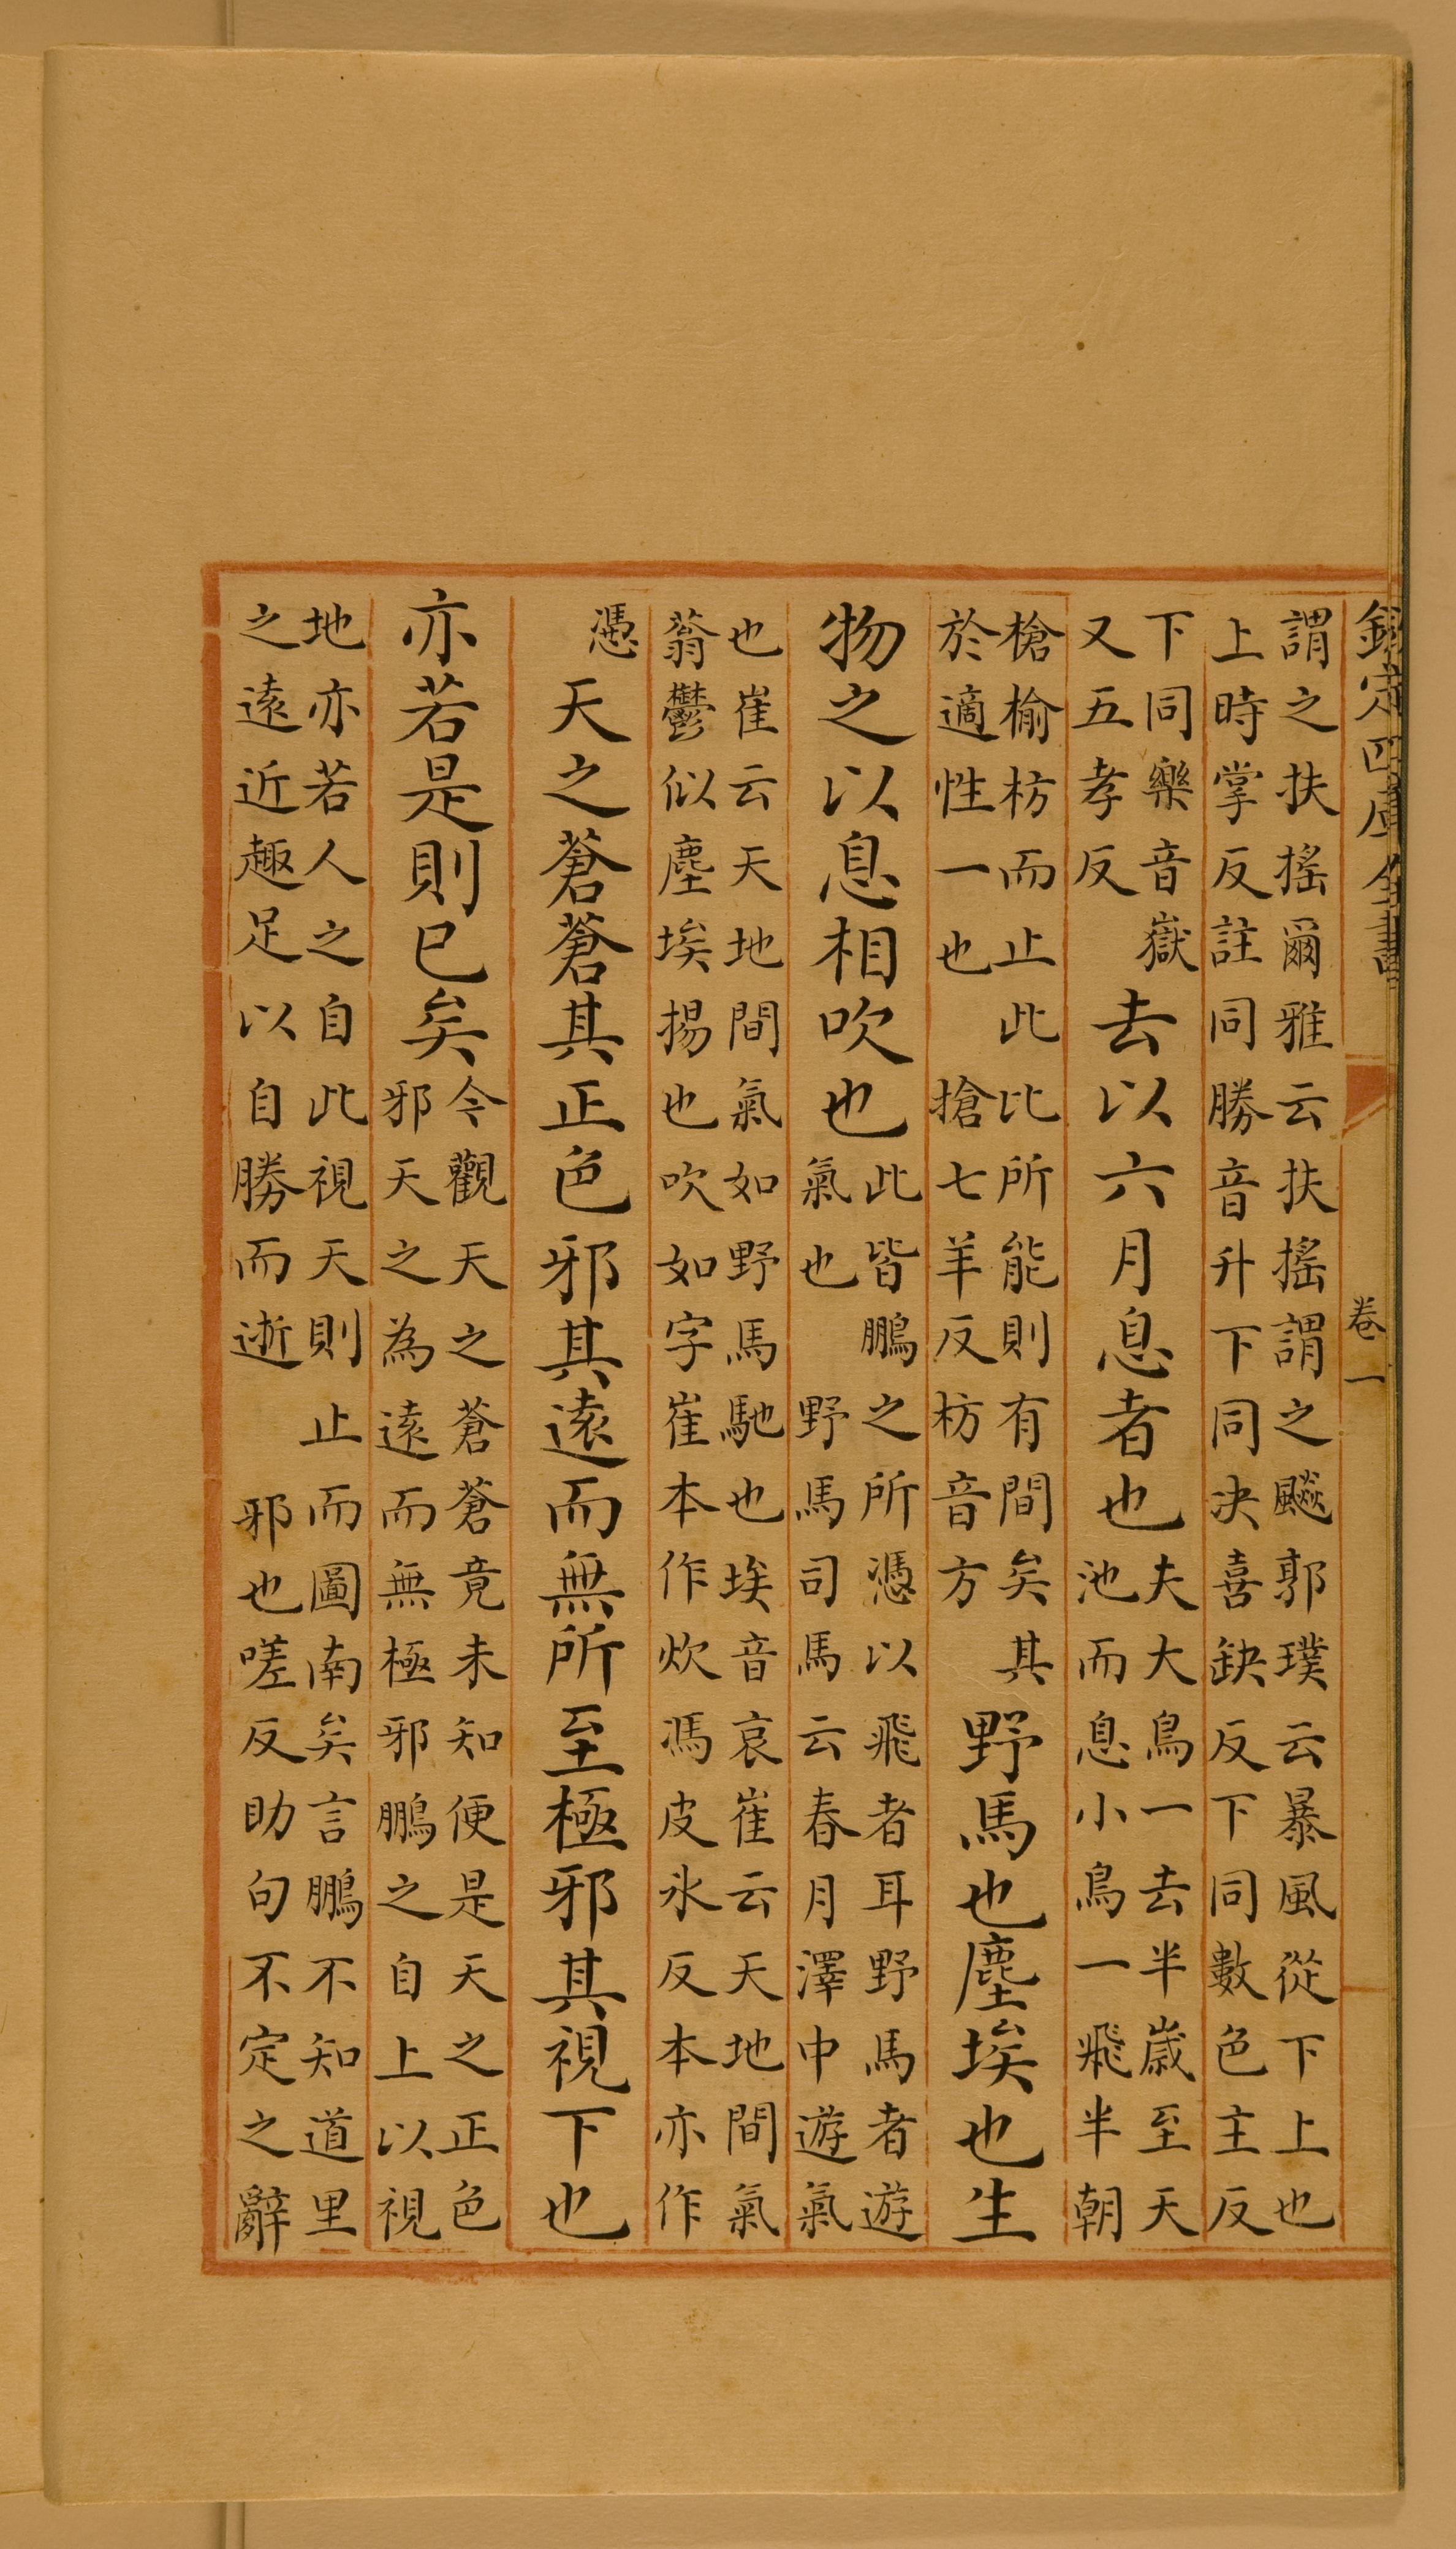 欽定四庫全書 卷一
謂之扶搖爾雅云扶搖謂之飈郭璞云暴風從下上也
上時掌反註同勝音升下同決喜缺反下同數色主反
下同樂音嶽
又五孝反
去以六月息者也
夫大鳥一去半歲至天
池而息小鳥一飛半朝
槍榆枋而止此比所能則有間矣其
於適性一也 搶七羊反枋音方
野馬也塵埃也生
物之以息相吹也
此皆鵬之所憑以飛者耳野馬者遊
氣也 野馬司馬云春月澤中遊氣
也崔云天地間氣如野馬馳也埃音哀崔云天地間氣
蓊鬱似塵埃揚也吹如字崔本作炊馮皮氷反本亦作
憑
天之蒼蒼其正色邪其遠而無所至極邪其視下也
亦若是則已矣
今觀天之蒼蒼竟未知便是天之正色
邪天之為遠而無極邪鵬之自上以視
地亦若人之自此視天則止而圖南矣言鵬不知道里
之遠近趣足以自勝而逝 邪也嗟反助句不定之辭